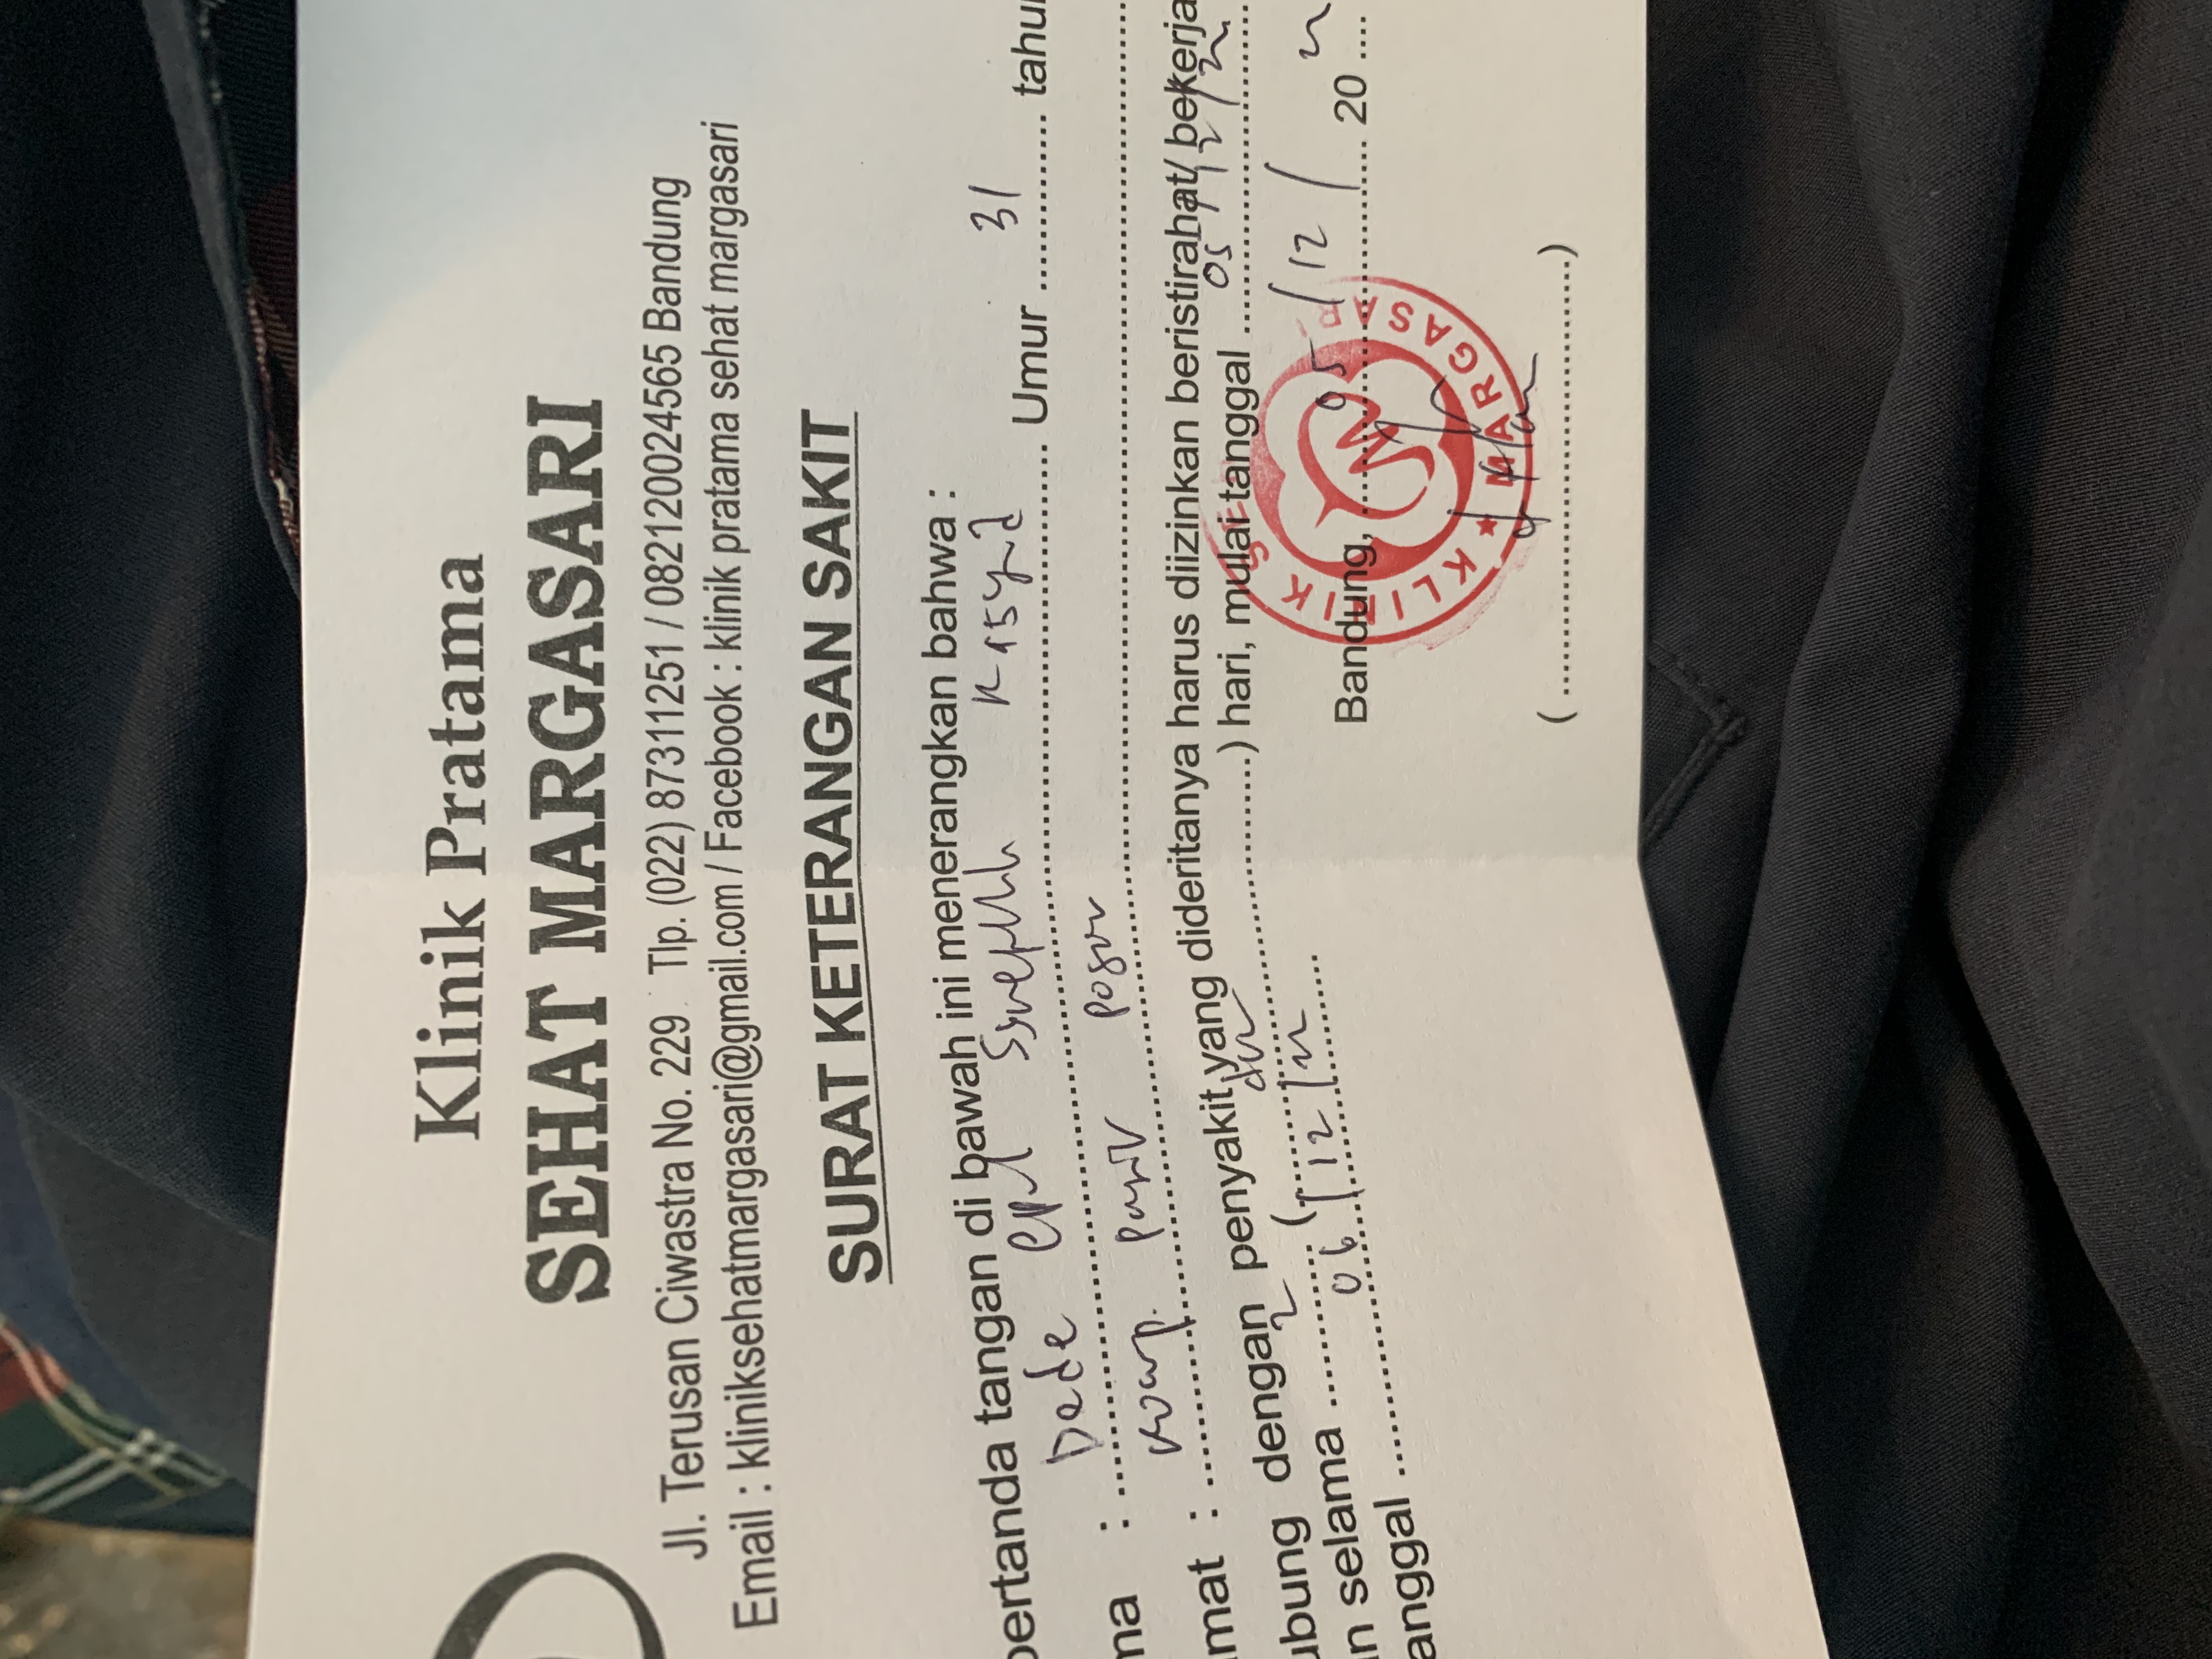 Klinik Pratama
SEHAT MARGASARI
Jl. Terusan Ciwastra No. 229 Tlp. (022) 87311251 / 082120024565 Bandung
Email : kliniksehatmargasari@gmail.com / Facebook : klinik pratama sehat margasari
SURAT KETERANGAN SAKIT
bertanda tangan di bawah ini menerangkan bahwa :
ma : Dede Umur 31 tahu
mat : Komp. Pasir Pogor
ubung dengan penyakit yang dideritanya harus diizinkan beristirahat/ bekerja
n selama 2 (dua) hari, mulai tanggal 05/12/22
anggal 06/12/22
Bandung, 05/12/ 20 22
KLINIK SE MARGASAR